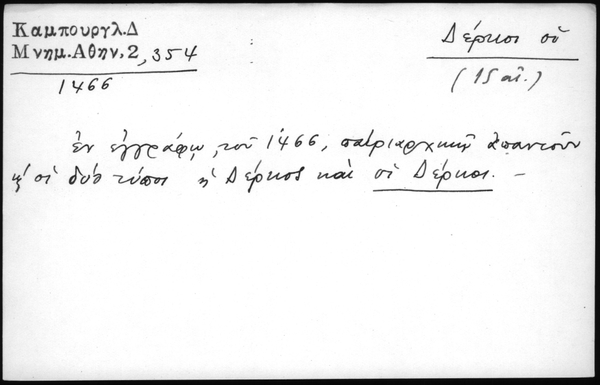 Καμπουργλ.Δ
Μνημ.Αθην.2, 354
1466
Δέρκοι οἱ
(15 αἰ.)
ἐν ἐγγράφῳ, τοῦ 1466, πατριαρχικῷ ἀπαντοῦν
κ' οἱ δύο τύποι ἡ Δέρκος καὶ οἱ Δέρκοι. –